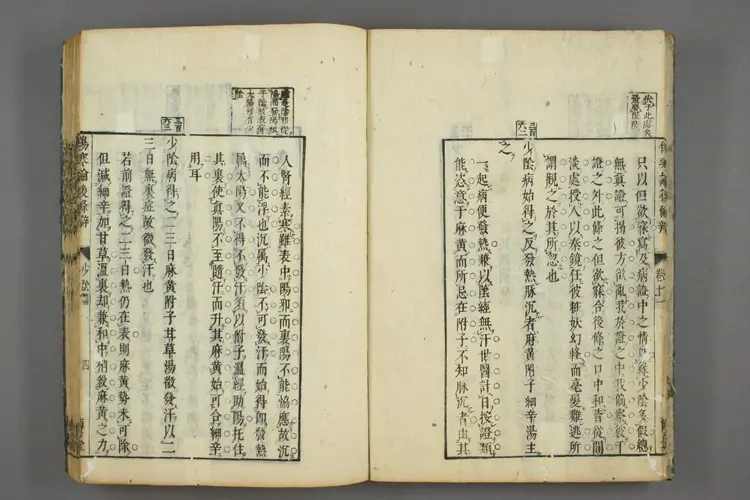 只以但欲寐寫及病證中之情緣少陰多假總
無真證可揭彼方欲亂我於證之中我偏察彼于
證之外此條之但欲寐合後條之口中和皆從閒
淡處授人以秦鏡任彼粧妖幻怪而毫髮難逃所
謂觀之於其所忽也
三百六二
少陰病始得之反發熱脉沉者麻黃附子細辛湯主
之
一起病便發熱兼以陰經無汗世醫計日按證類
能恣意于麻黃而所忌在附子不知脉沉者由其
人腎經素寒雖表中陽邪而裏陽不能協應故沉
而不能浮也沉属少陰不可發汗而始得即發熱
属太陽又不得不發汗須以附子溫經助陽托住
其裏使真陽不至隨汗而升其麻黃始可合細辛
用耳
三百六三
少陰病得之二三日麻黃附子甘草湯微發汗以二
三日無裏症故微發汗也
若前證得之二三日熱仍在表則麻黃勢未可除
但減細辛加甘草溫裏却兼和中稍殺麻黃之力
傷寒論後條辨
少陰篇
四
卷十一